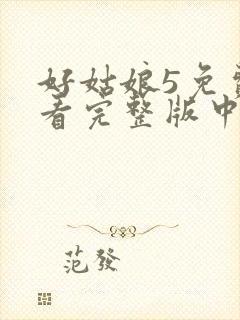 好姑娘5免
看完整版中
范發